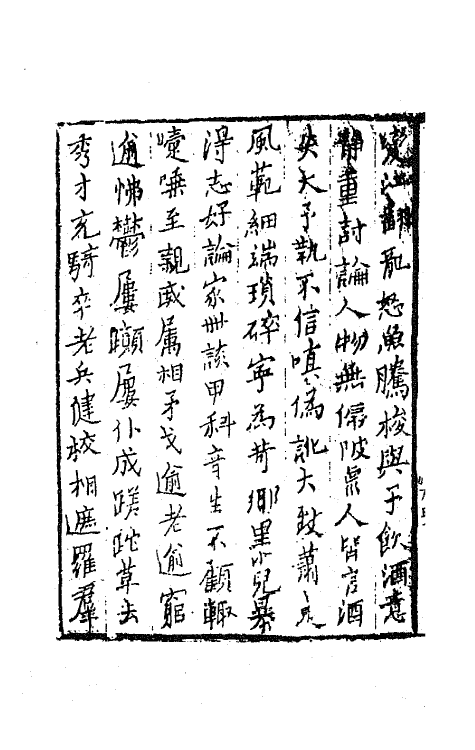 龍怒魚騰梭與予飲酒意
靜重討論人物無偏陂衆人皆言酒
失天予執不信嗔偽訛大致蕭
風範細端瑣碎寧為苛鄉里小兒暴
淂志好論家世談甲科音生不顧輒
嚏唾至親戚屬相矛戈逾老逾窮
逾怫鬱屢躓屢仆成蹉跎草玄
秀才充騎卒老兵健校相遮羅羣